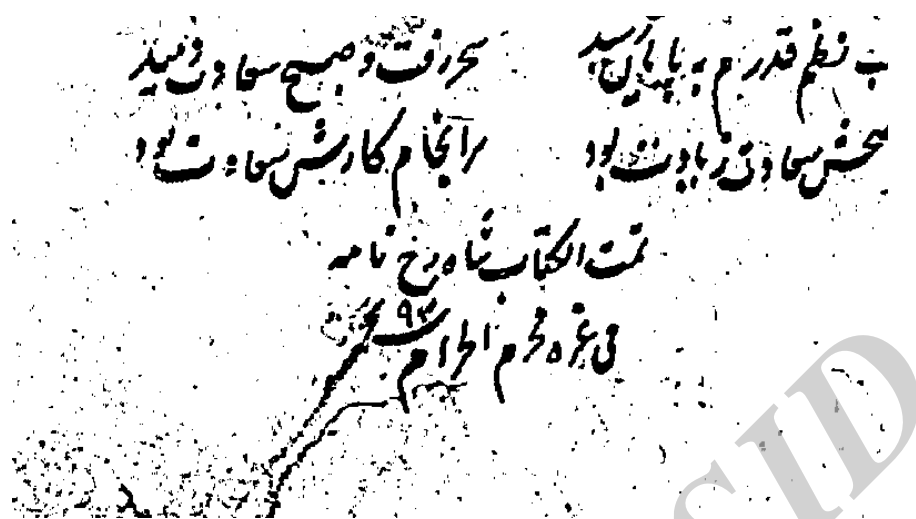 شب نظم قدرم به پایان رسید سحر رفت و صبح سعادت دمید
سعادت زیادت بود سرانجام کارش سعادت بود
تمت الکتاب شاه رخ نامه
فی غره محرم الحرام
SID